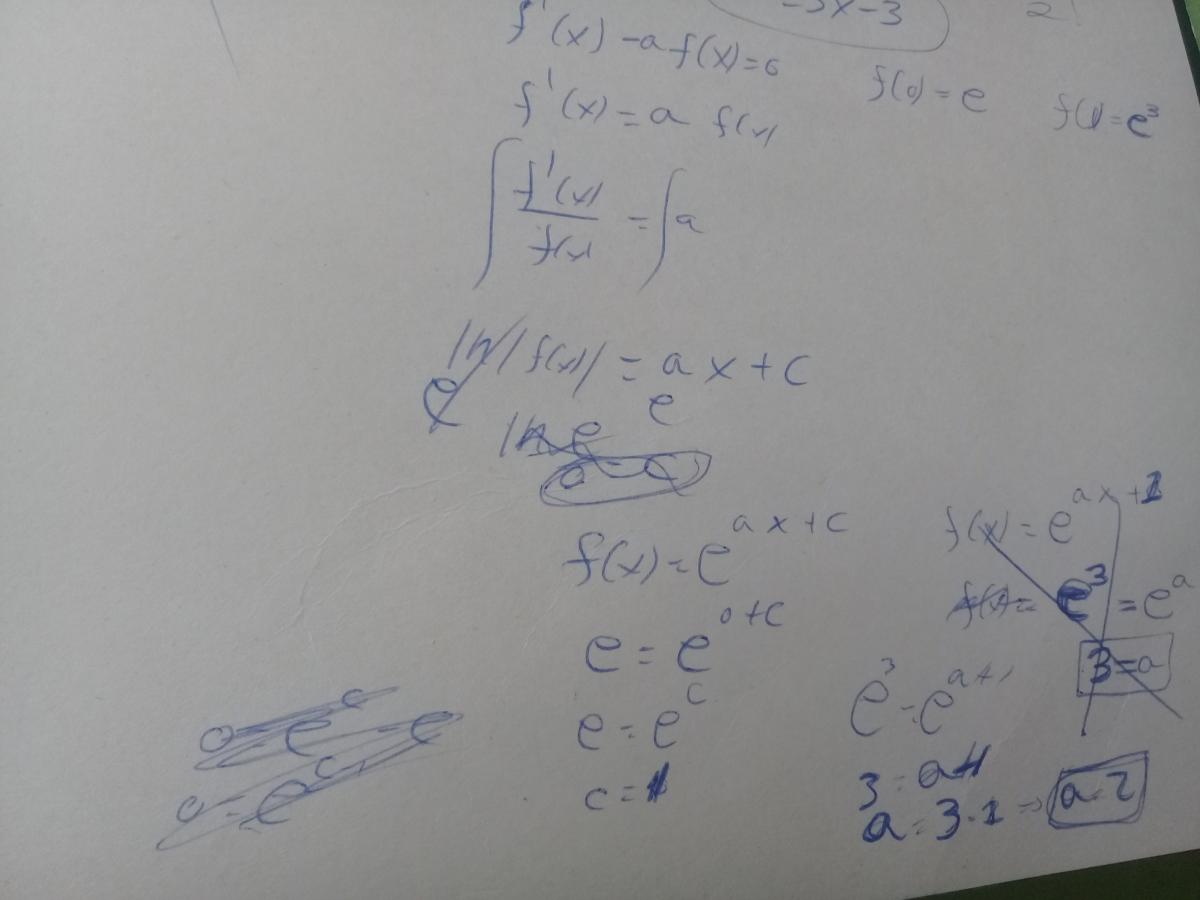 -3x-3
2
f'(x) -a f(x)=0
f(0) = e
f(1)=e³
f'(x) = a f(x)
∫ f'(x)/f(x) = ∫a
ln|f(x)| = ax+c
e
e
f(x) = e^(ax+c)
e = e^(0+c)
e = e^c
c = 1
f(x) = e^(ax+1)
e³ = e^a
3 = a
e³ = e^(a+1)
3 = a+1
a = 3-1 => a=2